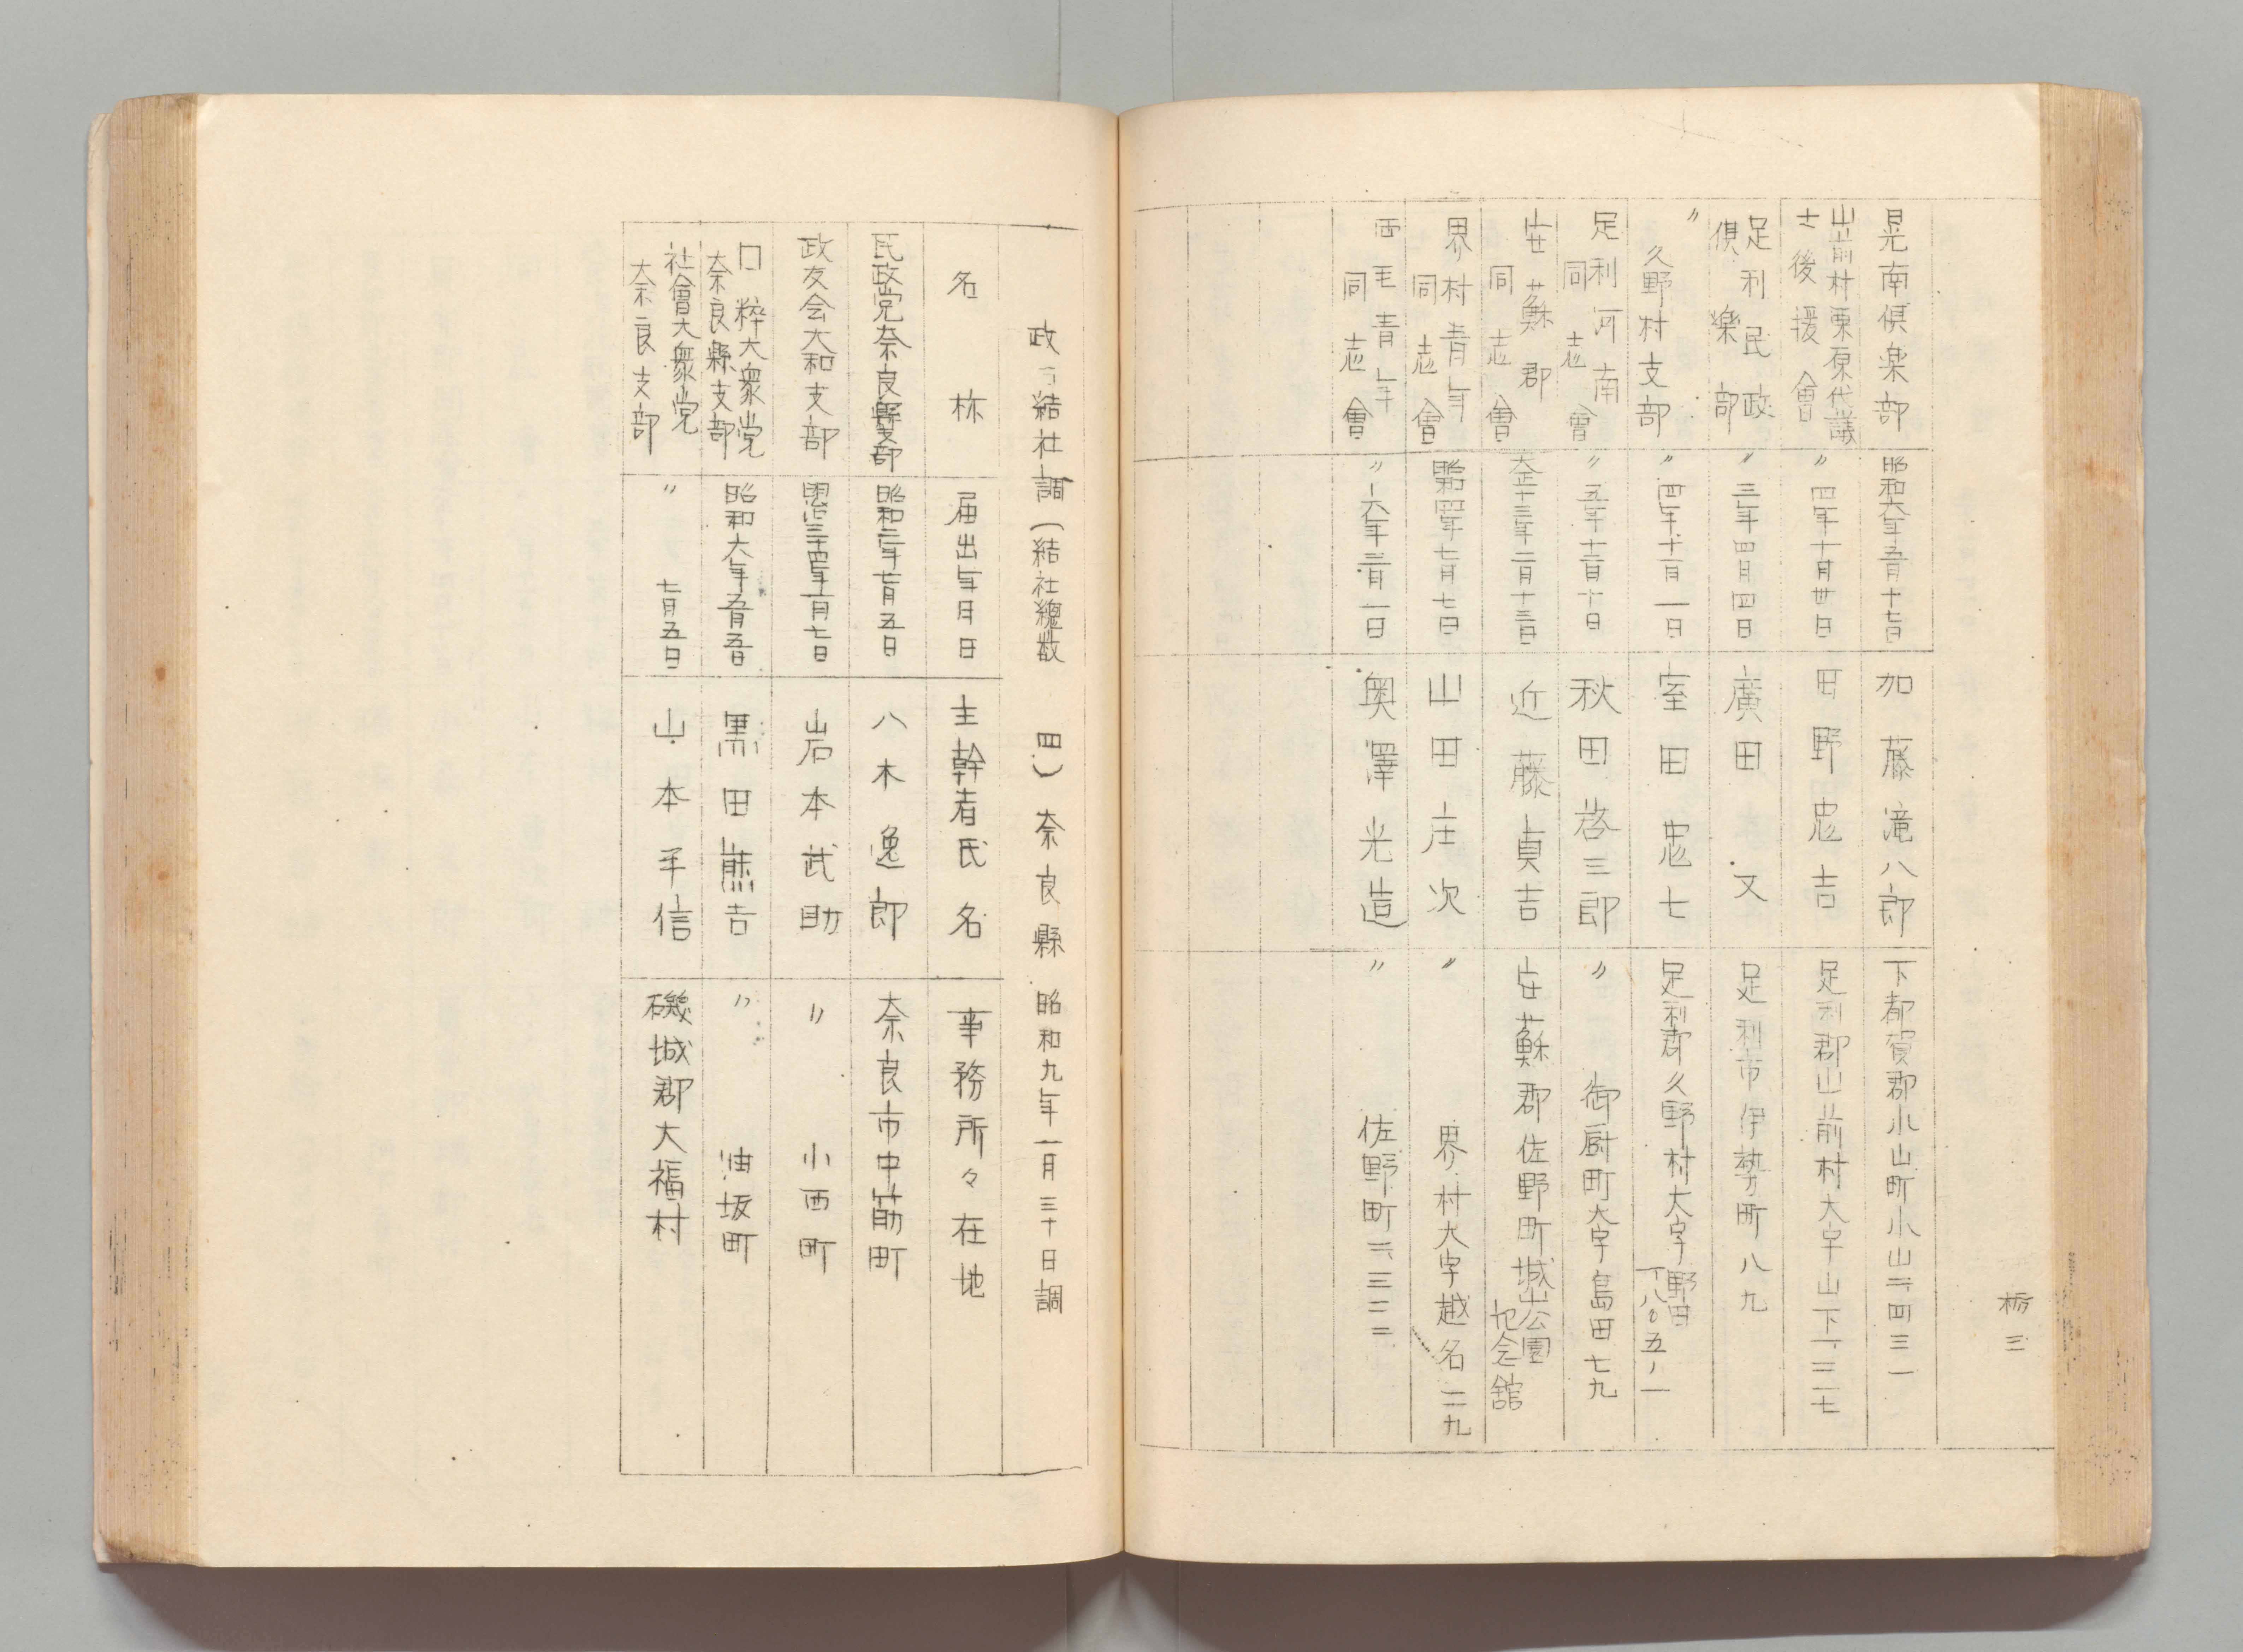 栃三
晃南倶楽部 昭和六年五月十七日 加藤滝八郎 下都賀郡小山町小山二、四三一
山前村栗原代議
士後援會 〃四年十月卅日 田野忠吉 足利郡山前村大字山下一、三二七
足利民政
倶楽部 〃三年四月四日 廣田又 足利市伊勢町八九
〃
久野村支部 〃四年十一月一日 室田忠七 足利郡久野村大字野田
一八〇五ノ一
足利河南
同志會 〃五年十二月十日 秋田啓三郎 〃御厨町大字島田七九
安蘇郡
同志會 大正十三年二月十三日 近藤貞吉 安蘇郡佐野町城山公園
地会館
界村青年
同志會 昭和四年七月七日 山田庄次 〃界村大字越名二九
両毛青年
同志會 〃六年三月一日 奥澤光造 〃佐野町二、三二二
政 結社調（結社總数 四）奈良縣 昭和九年一月三十日調
名称 届出年月日 主幹者氏名 事務所々在地
民政党奈良縣支部 昭和二年七月五日 八木逸郎 奈良市中筋町
政友会大和支部 明治三十四年一月七日 岩本武助 〃小西町
口粹大衆党
奈良縣支部 昭和六年五月五日 黒田熊吉 〃油坂町
社會大衆党
奈良支部 〃七月五日 山本平信 磯城郡大福村